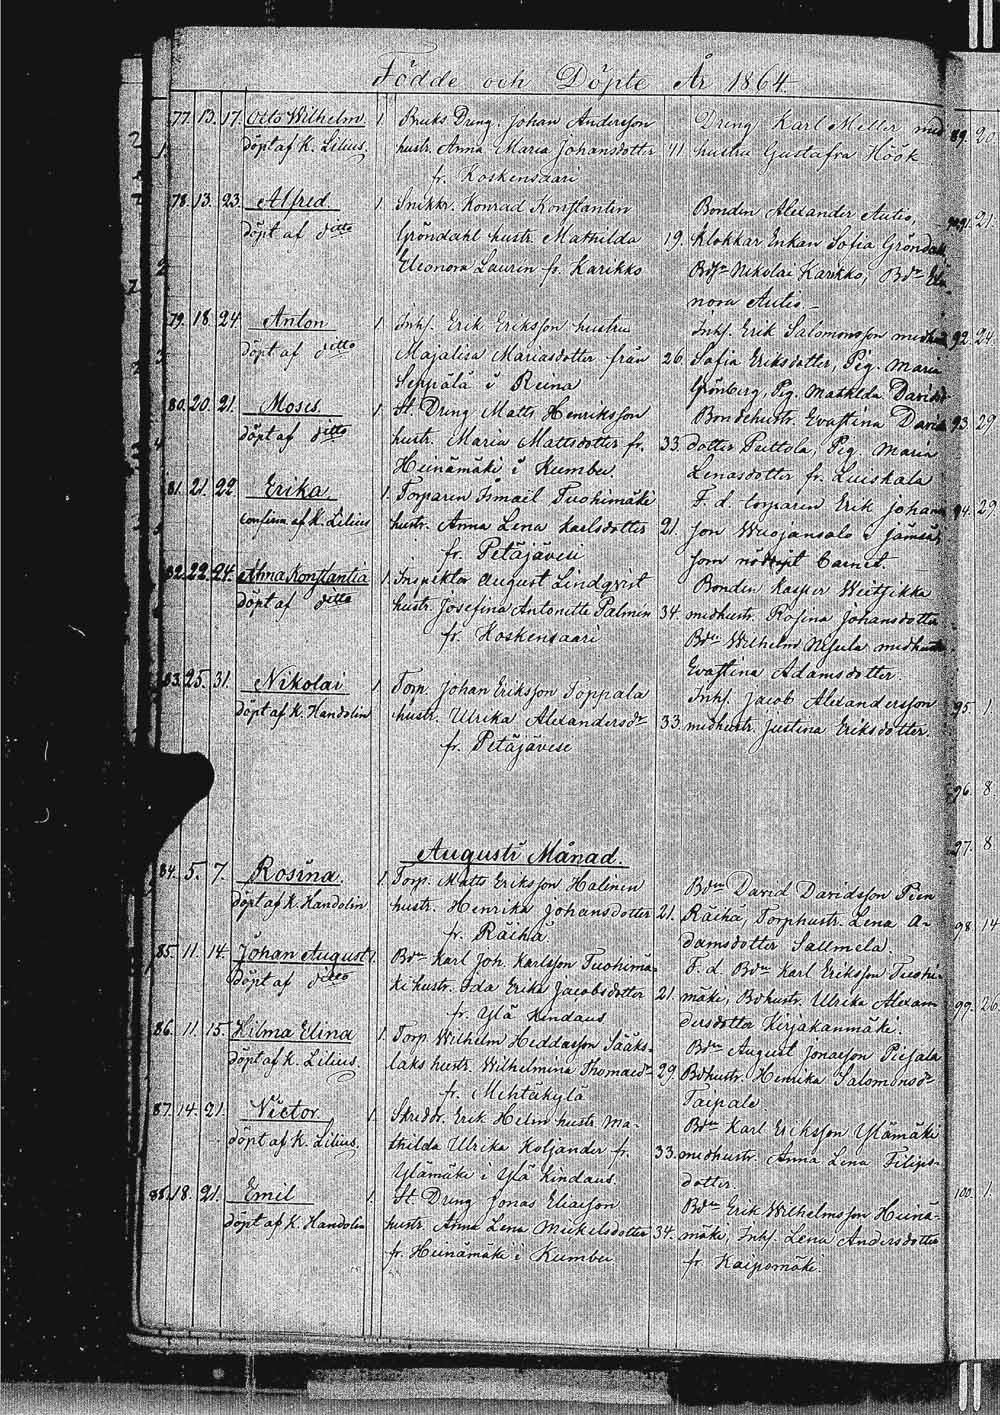 Födde och Döpte År 1864.
77. 13. 17. Otto Wilhelm 1 Bruks Dreng. Johan Andersson Dreng Karl Meller med
döpt af K. Lilius. hustr. Anna Maria Johansdotter 41 hustru Gustafva Höök
fr. Koskensaari
78. 13. 23. Alfred 1. Snikkr. Konrad Konstantin Bonden Alexander Autio,
döpt af ditto Gröndahl hustr. Mathilda 19. Klokkar Enkan Sofia Gröndahl
Eleonora Laurin fr. Karikko Bdsn Nikolai Karikko, Bdr Eleo-
nora Autio
79. 18. 24. Anton 1. Inhs. Erik Eriksson hustru Inhs. Erik Salomonsson med hustr
döpt af ditto Majalisa Mariasdotter från 26. Sofia Eriksdotter, Pig. Maria
Seppälä i Reina Grönberg, Pig. Mathilda Davidsd
80. 20. 21. Moses 1. St. Dreng Matts Henriksson Bondehustr. Evastina David
döpt af ditto hustr. Maria Mattsdotter fr. 33. dotter Peittola, Pig. Maria
Heinämäki i Kumbu. Lenasdotter fr. Luiskala
81. 21. 22. Erika 1. Torparen Ismael Tuohimäki F. d. torparen Erik Johans
confirm af K. Lilius hustr. Anna Lena Karlsdotter 21. son Wuojansalo i Jämsä,
fr. Petäjävesi som nöddöpt barnet.
82. 22. 24. Alma Konstantia 1. Inspektor August Lindqvist Bonden Kasper Weitjikka
döpt af ditto hustr. Josefina Antonette Palmén 34. med hustr. Rosina Johansdotter
fr. Koskensaari Bdn Wilhelm Nisula med hustr
Evastina Adamsdotter.
83. 25. 31. Nikolai 1. Torp. Johan Eriksson Toppala Inhs. Jacob Alexandersson
döpt af K. Handolin hustr. Ulrika Alexandersdr 33. med hustr. Justina Eriksdotter.
fr. Petäjävesi
Augusti Månad.
84. 5. 7. Rosina 1. Torp. Matts Eriksson Halinen Bdn David Davidsson Pien
döpt af K. Handolin hustr. Henrika Johansdotter 21. Räihä, Torphustr. Lena A-
fr. Räihä. damsdotter Sallmela.
85. 11. 14. Johan August 1. Bdn Karl Joh. Karlsson Tuohimä- F. d. Bdn Karl Eriksson Tuohi-
döpt af ditto ki hustr. Ida Erika Jacobsdotter 21. mäki, Bdhustr. Ulrika Alexan
fr. Ylä Kindaus dersdotter Kirjakanmäki.
86. 11. 15. Hilma Elina 1. Torp. Wilhelm Heddasson Sääks- Bdn August Jonasson Piesala
döpt af K. Lilius. laks hustr. Wilhelmina Thomasdr 29. Bdhustr. Henrika Salomonsdr
fr. Mehtäkylä Taipale.
87. 14. 21. Victor 1. Skreddr. Erik Helin hustr. Ma- Bdn Karl Eriksson Ylämäki
döpt af K. Lilius. thilda Ulrika Koljander fr. 33. med hustr. Anna Lena Filips-
Ylämäki i Ylä Kindaus. dotter
88. 18. 21. Emil 1. St. Dreng Jonas Eliasson Bdn Erik Wilhelmsson Heinä-
döpt af K. Handolin hustr. Anna Lena Mickelsdotter 34. mäki, Inhs. Lena Andersdotter
fr. Heinämäki i Kumbu fr. Kaipomäki.
89. 20.
91. 21.
92. 24.
93. 29
94. 29
95. 1.
96. 8.
97. 8
98. 14
99. 20
100. 1.